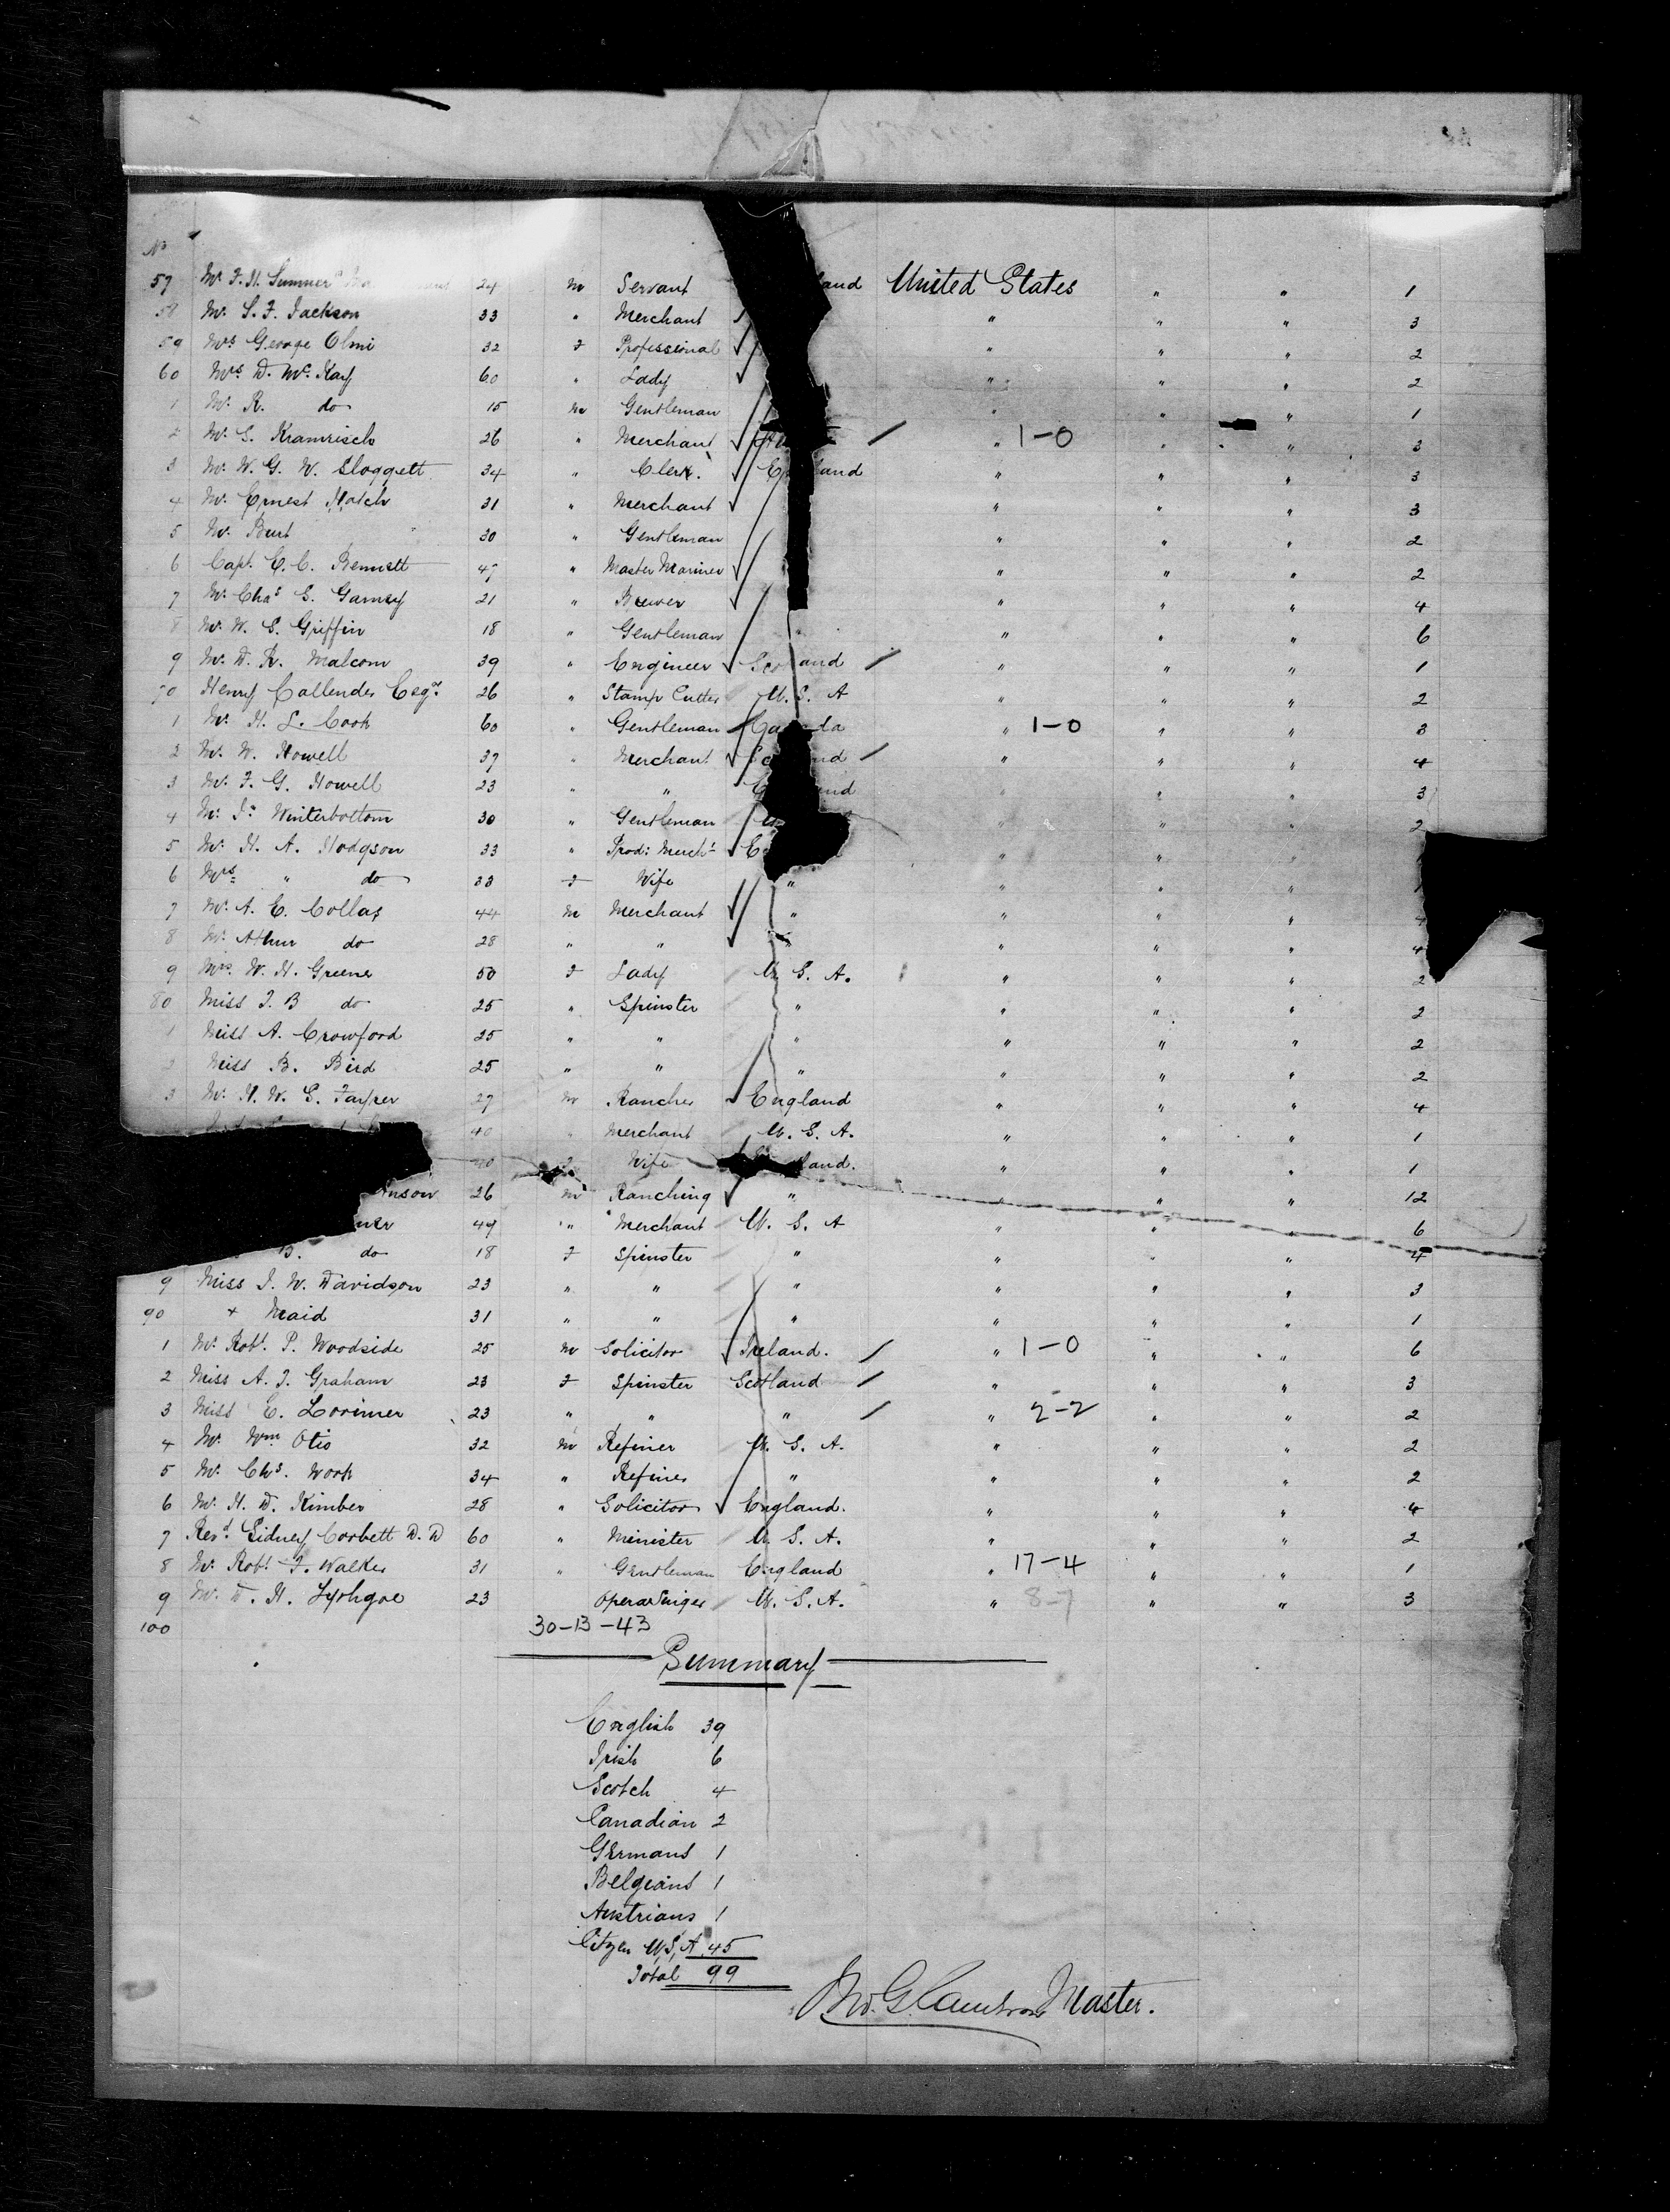 No
57 Mr F. H. Sumner 24 m Servant land United States " " 1
58 Mr. S. F. Jackson 33 " Merchant " " " 3
59 Mrs George Olmi 32 F Professional " " " 2
60 Mrs D. McKay 60 " Lady " " " 2
1 Mr. R. do 15 m Gentleman " " " 1
2 Mr. S. Kramrisch 26 " Merchant / " 1-0 " " 3
3 Mr. W. G. W. Sloggett 34 " Clerk. England " " " 3
4 Mr. Ernest Hatch 31 " Merchant " " " 3
5 Mr. Burt 30 " Gentleman " " " 2
6 Capt. E. C. Bennett 47 " Master Mariner " " " 2
7 Mr. Chas S. Garney 21 " Brewer " " " 4
8 Mr. W. S. Griffin 18 " Gentleman " " " " 6
9 Mr. D. R. Malcom 39 " Engineer Scotland / " " " 1
70 Henry Callender Esqr. 26 " Stamp Cutter U. S. A " " " 2
1 Mr. H. L. Cook 60 " Gentleman Canada " 1-0 " " 3
2 Mr. W. Howell 37 " Merchant Scotland / " " " 4
3 Mr. F. G. Howell 23 " " England " " " 3
4 Mr. Winterbottom 30 " Gentleman " " " 2
5 Mr. H. A. Hodgson 33 " Prod: Mercht " " "
6 Mrs " do 33 F Wife " " " "
7 Mr. A. E. Collas 44 m Merchant " " " " 4
8 Mr. Athur do 28 " " " " " " 4
9 Mrs. W. H. Greene 50 F Lady U. S. A. " " " 2
80 Miss J. B do 25 " Spinster " " " " 2
1 Miss A. Crowford 25 " " " " " " 2
2 Miss B. Bird 25 " " " " " " 2
3 Mr. H. W. S. 27 m Rancher England " " " 4
40 " Merchant U. S. A. " " " 1
40 F Wife land. " " " 1
nson 26 m Ranching " " " " 12
ner 49 " Merchant U. S. A " " " 6
B. do 18 F Spinster " " " " 4
9 Miss J. W. Davidson 23 " " " " " " 3
90 + Maid 31 " " " " " " 1
1 Mr. Robt. P. Woodside 25 m Solicitor Ireland. / " 1-0 " " 6
2 Miss A. J. Graham 23 F Spinster Scotland / " " " 3
3 Miss E. Lorimer 23 " " " / " 2-2 " " 2
4 Mr Wm Otis 32 m Refiner U. S. A. " " " 2
5 Mr. Chs. Work 34 " Refiner " " " " 2
6 Mr. H. D. Kimber 28 " Solicitor England. " " " 4
7 Revd. Sidney Corbett D. D 60 " Minister U. S. A. " " " 2
8 Mr. Robt. F. Walker 31 " Gentleman England " 17-4 " " 1
9 Mr. D. H. Lythgoe 23 Opera Singer U. S. A. " 8-7 " " 3
100
30-13-43
Summary
English 39
Irish 6
Scotch 4
Canadian 2
Germans 1
Belgians 1
Austrians 1
Citzen U,S,A. 45
Total 99
Jno. G. Cameron Master.